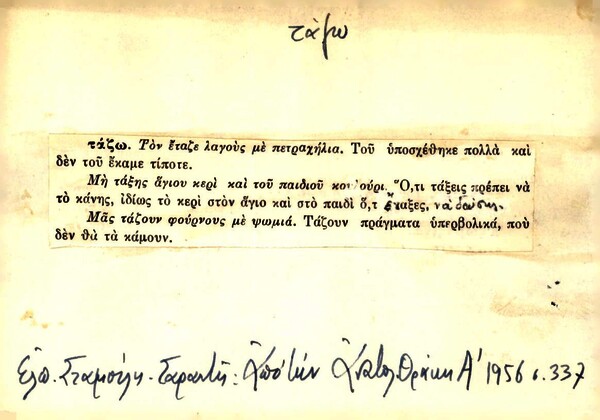 τάζω
τάζω. Τὸν ἔταζε λαγοὺς μὲ πετραχήλια. Τοῦ ὑποσχέθηκε πολλὰ καὶ
δὲν τοῦ ἔκαμε τίποτε.
Μὴ τάξῃς ἅγιου κερὶ καὶ τοῦ παιδιοῦ κουλούρι. Ὅ,τι τάξεις πρέπει νὰ
τὸ κάνῃς, ἰδίως τὸ κερὶ στὸν ἅγιο καὶ στὸ παιδὶ ὅ,τι ἔταξες, νὰ δώσῃς.
Μᾶς τάζουν φούρνους μὲ ψωμιά. Τάζουν πράγματα ὑπερβολικά, ποὺ
δὲν θὰ τὰ κάμουν.
Ἐλπ. Σταμούλη - Σαραντῆ: Ἀπὸ τὴν Ἀνατολ. Θράκη Α' 1956 σ. 337